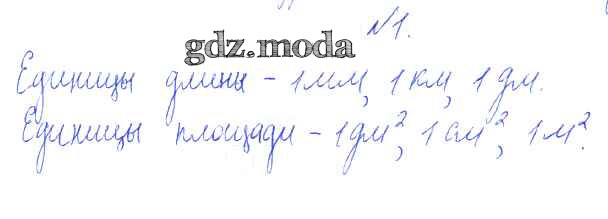 №1.
gdz.moda
Единицы длины - 1мм, 1км, 1дм.
Единицы площади - 1дм², 1см², 1м².